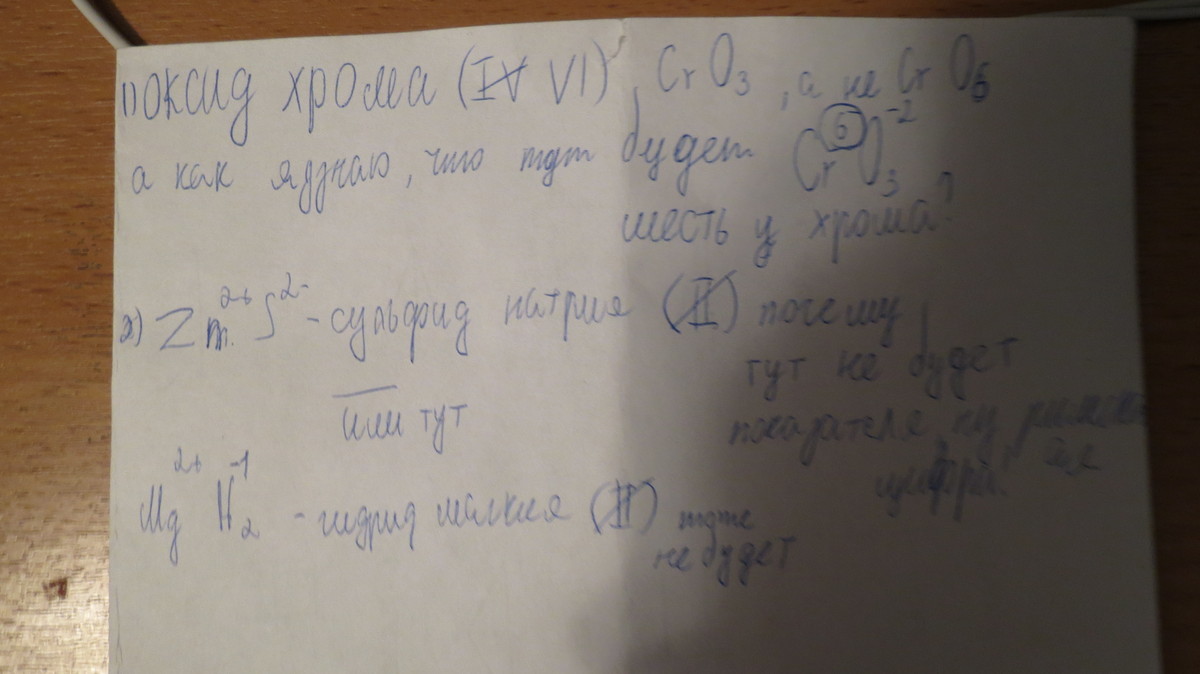 1) оксид хрома (IV VI), CrO3, а не CrO6
а как я узнаю, что тут будет Cr 6 O3 -2
шесть у хрома?
2) Zn 2+ S 2- - сульфид натрия (II) почему
тут не будет
показателя, ну римская
цифра?
или тут
Mg 2+ H2 -1 - гидрид магния (II) тоже
не будет